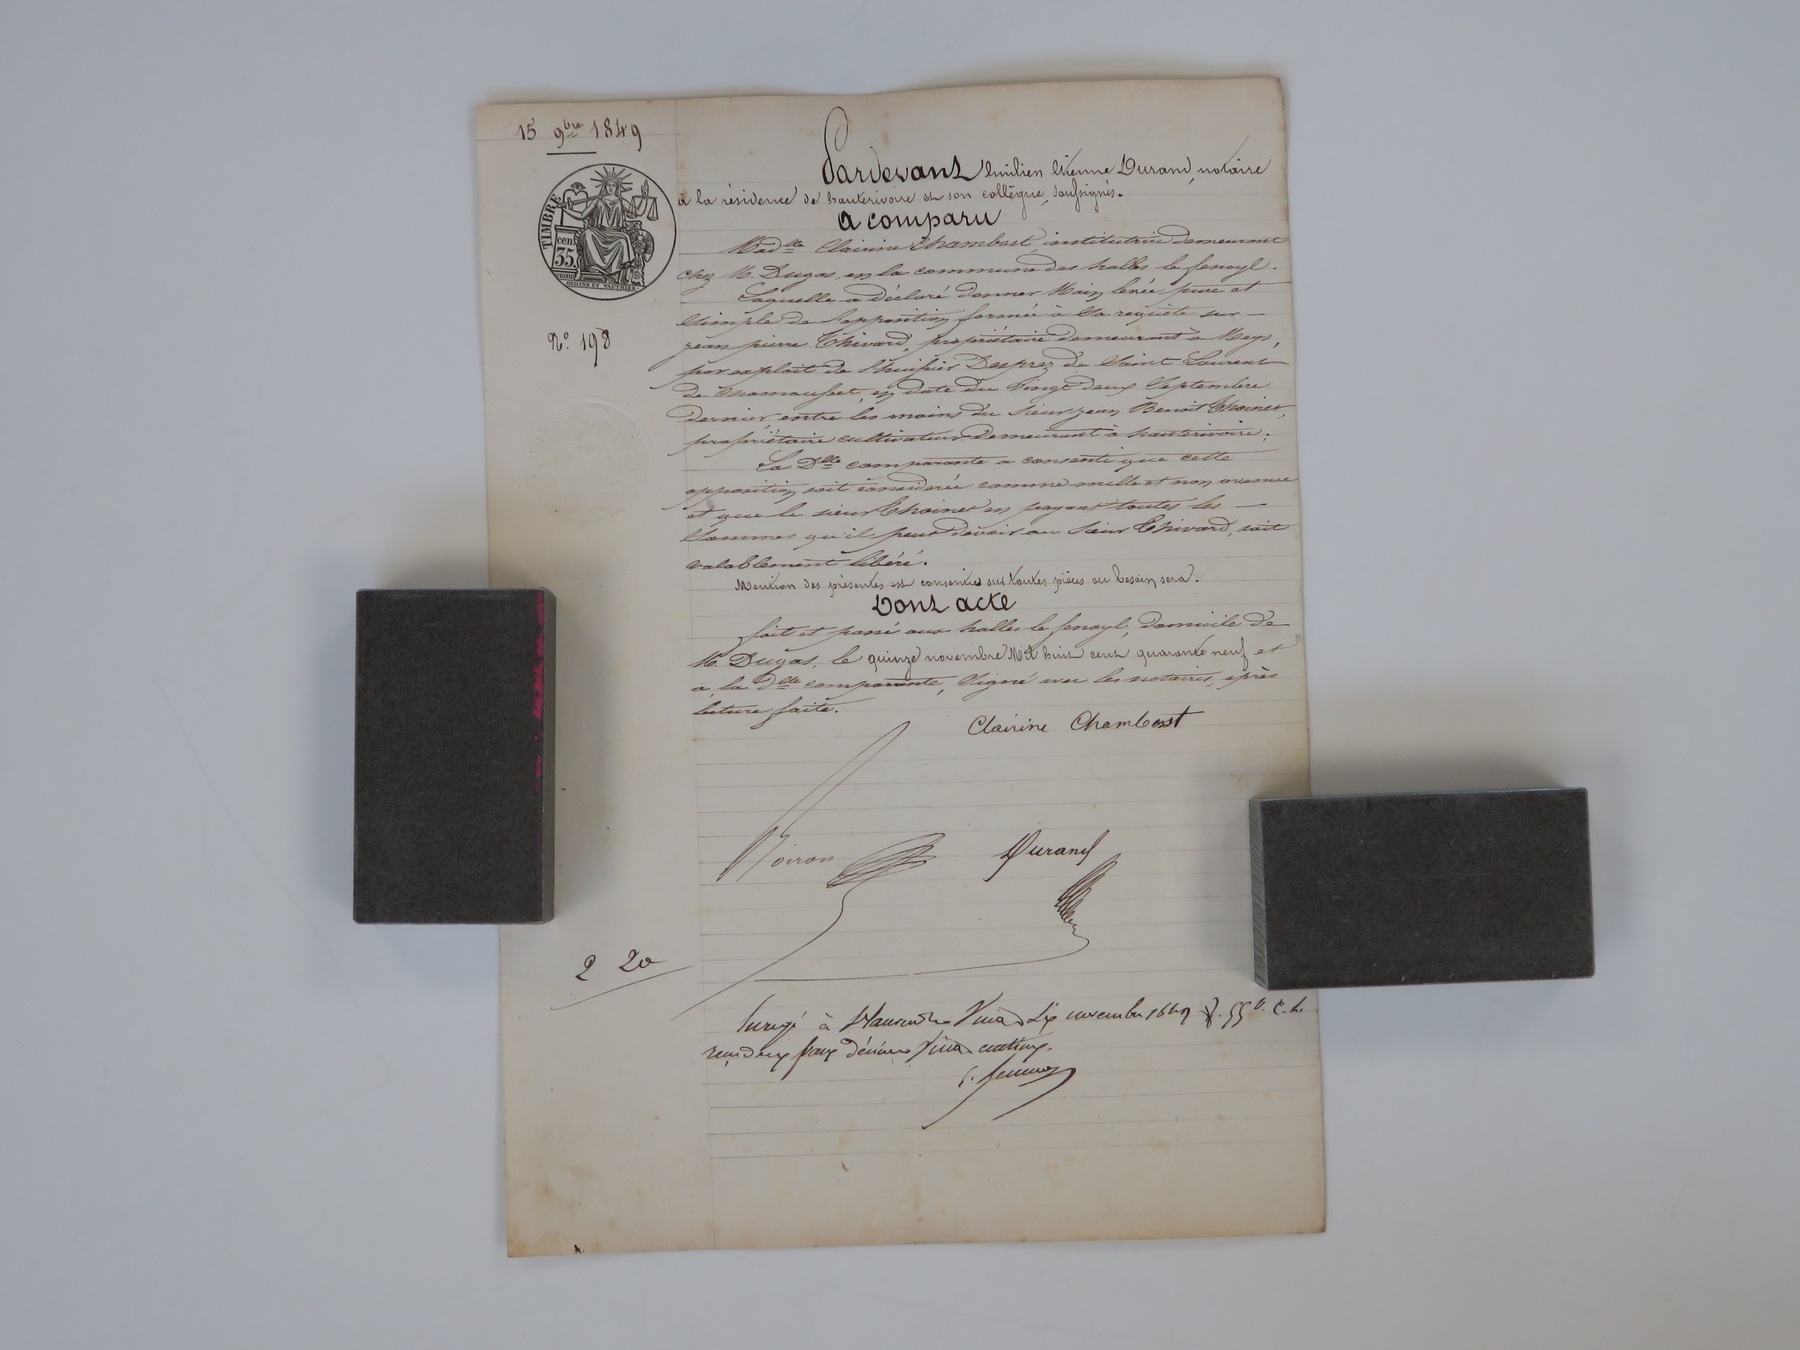 15 9bre 1849
TIMBRE
cen.
35.
OUDINÉ ET VAUTHIER
N.o 198
Pardevant Emilien Etienne Durand, notaire
à la résidence de hauterivoire et son collègue, soussignés.
a comparu
Mad.lle Clairine Chambost, institutrice demeurant
chez M. Dugas, en la commune des halles le fenoyl.
Laquelle a déclaré donner Main levée pure et
simple de l'opposition formée à sa requête sur
jean pierre Chivard, propriétaire demeurant à Meys,
par exploit de l'huissier Desprez de Saint Laurent
de Chamousset, en date du vingt deux Septembre
dernier, entre les mains du sieur jean Benoit Thoinet,
propriétaire cultivateur demeurant à hauterivoire.
La D.lle comparante a consenti que cette
opposition soit considérée comme nulle et non avenue
et que le sieur Thoinet en payant toutes les
Sommes qu'il peut devoir au sieur Chivard, soit
valablement libéré.
Mention des présentes est consentie sur toutes pièces où besoin sera.
Dont acte
fait et passé aux halles le fenoyl, domicile de
M. Dugas, le quinze novembre Mil huit cent quarante neuf et
a, la d.lle comparante, signé avec les notaires, après
lecture faite.
Clairine Chambost
Durand
2 20
à St Laurent le vingt dix novembre 1849 55 v. C.
reçu deux francs décime vingt centimes.